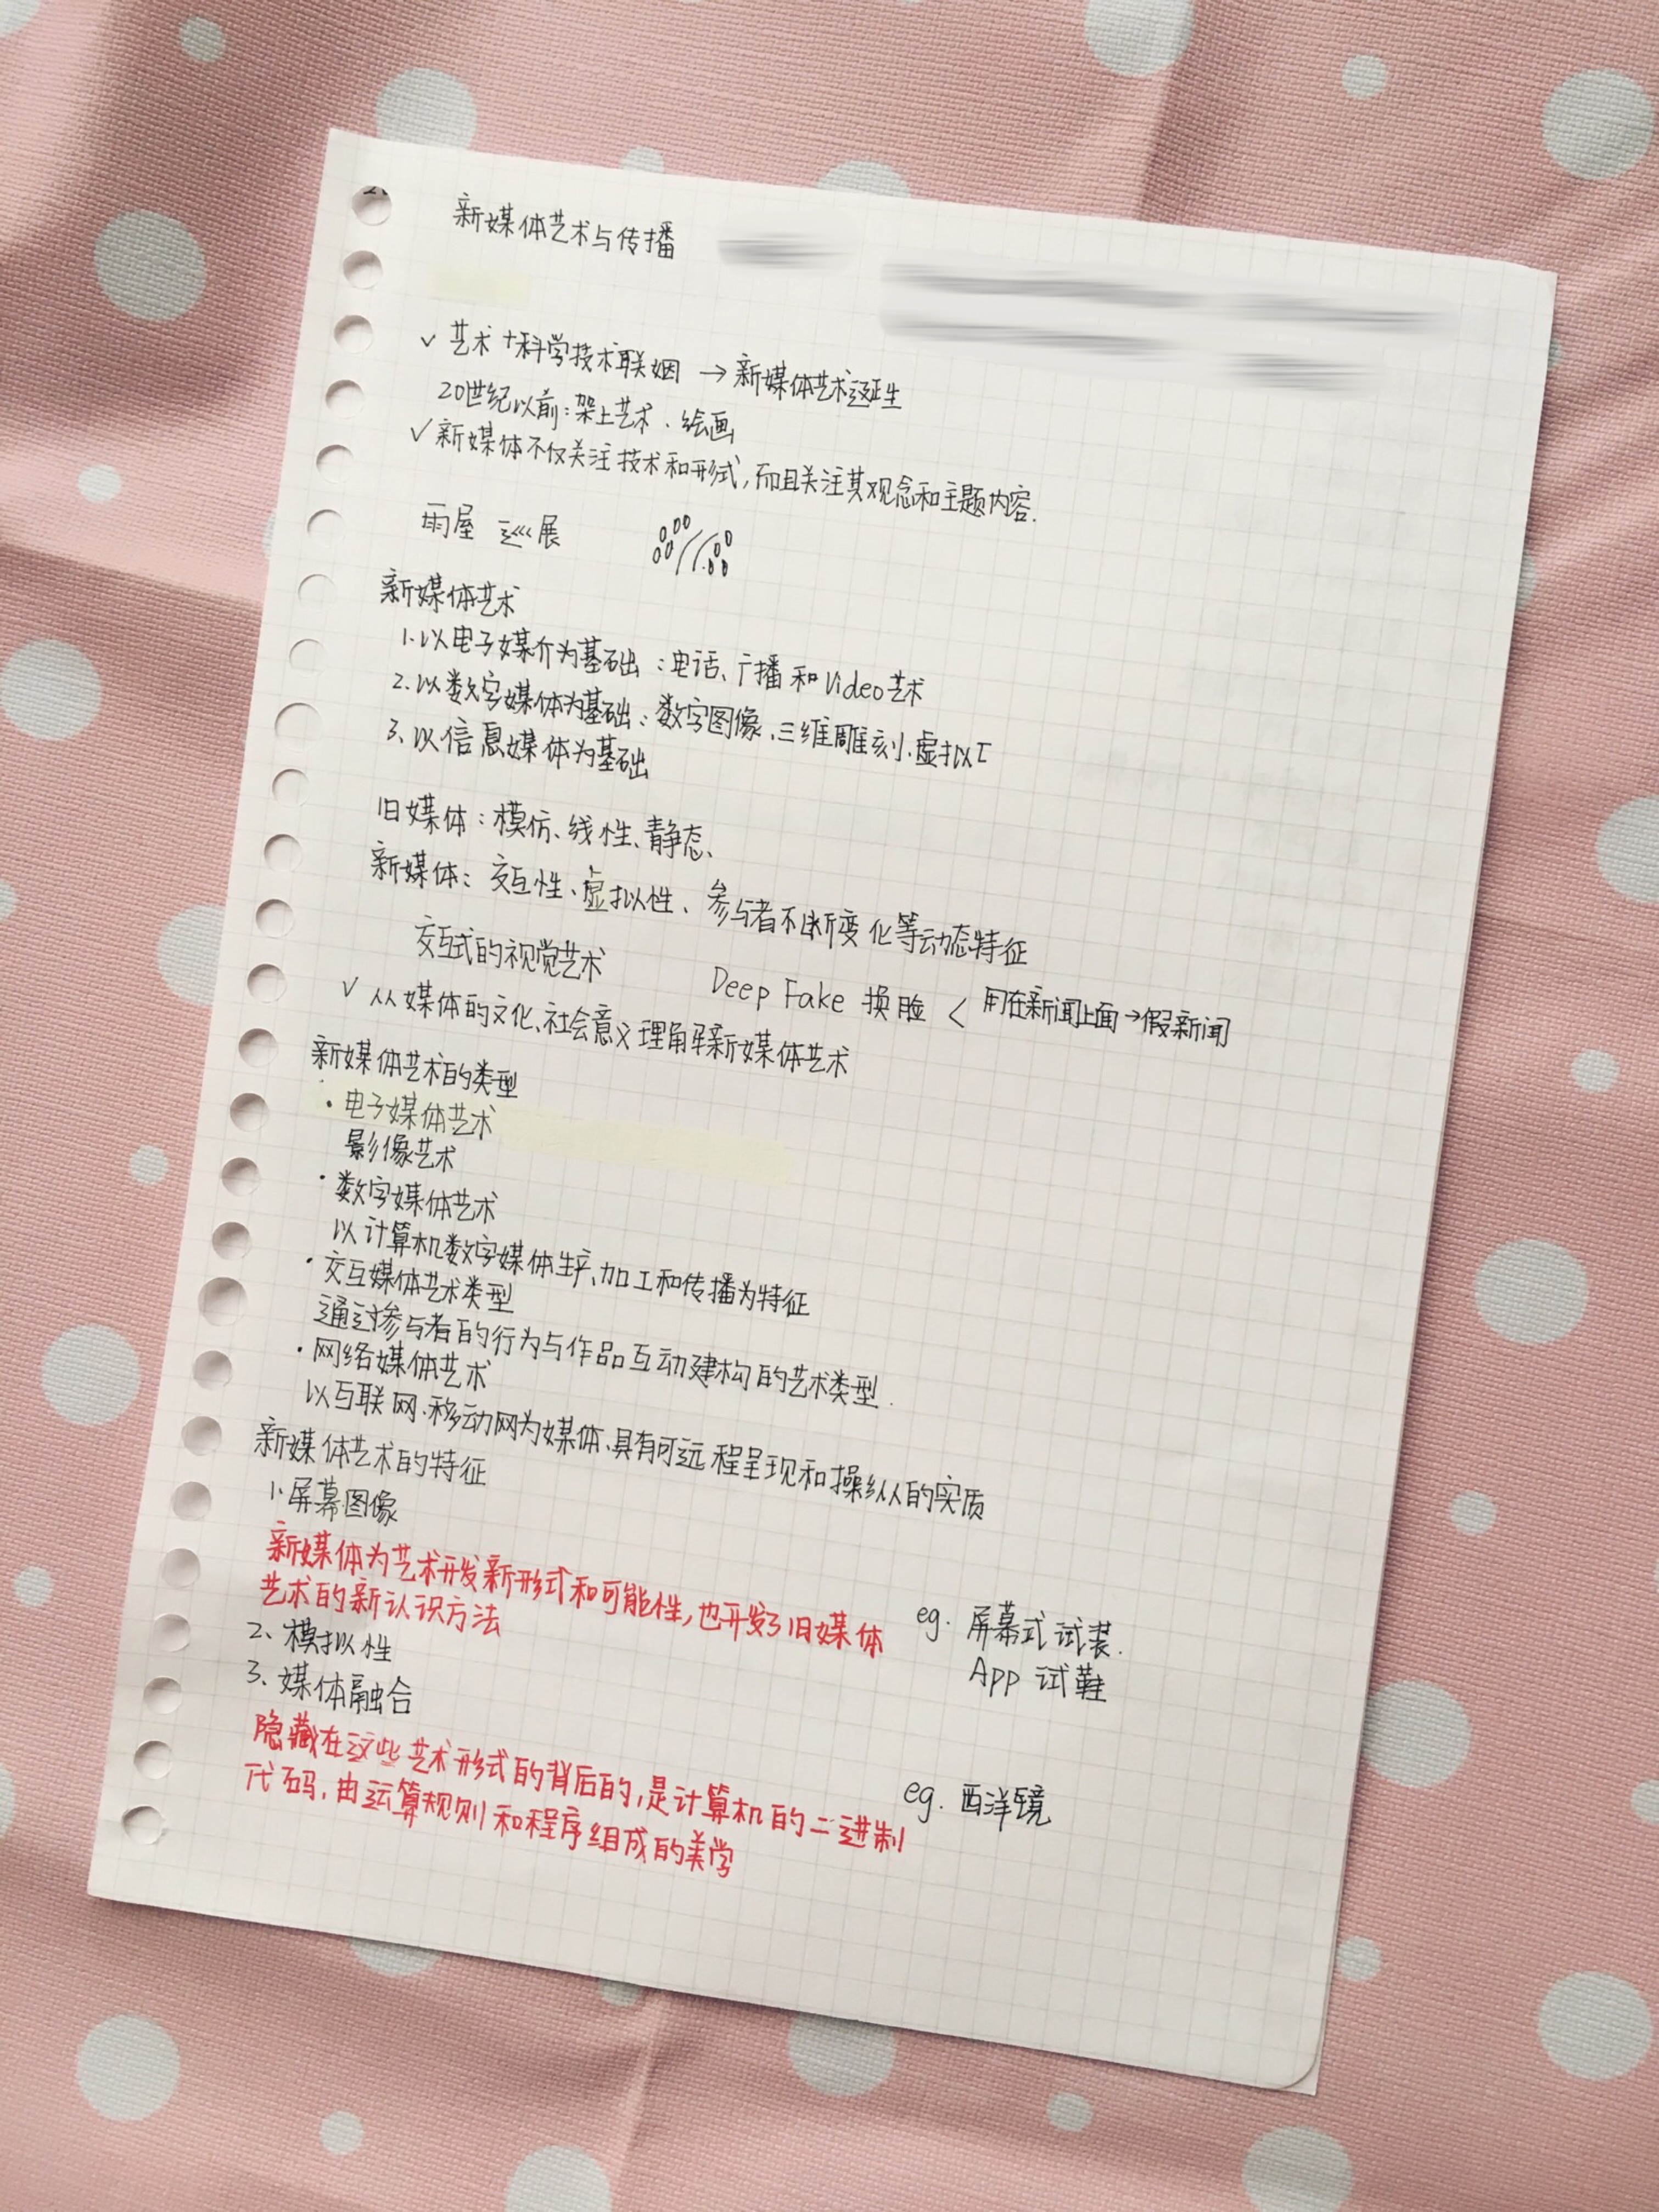 新媒体艺术与传播
✓ 艺术+科学技术联姻 → 新媒体艺术诞生
20世纪以前：架上艺术、绘画
✓ 新媒体不仅关注技术和形式，而且关注其观念和主题内容.
雨屋 巡展
新媒体艺术
1. 以电子媒介为基础：电话、广播和Video艺术
2. 以数字媒体为基础：数字图像、三维雕刻、虚拟
3、以信息媒体为基础
旧媒体：模仿、线性、静态、
新媒体：交互性、虚拟性、参与者不断变化等动态特征
交互式的视觉艺术
Deep Fake 换脸 < 用在新闻上面→假新闻
✓ 从媒体的文化、社会意义理解新媒体艺术
新媒体艺术的类型
· 电子媒体艺术
影像艺术
· 数字媒体艺术
以计算机数字媒体生产、加工和传播为特征
· 交互媒体艺术类型
通过参与者的行为与作品互动建构的艺术类型.
· 网络媒体艺术
以互联网、移动网为媒体、具有可远程呈现和操纵的实质
新媒体艺术的特征
1. 屏幕图像
新媒体为艺术开发新形式和可能性，也开发了旧媒体
艺术的新认识方法
eg. 屏幕式试装.
App 试鞋
2、模拟性
3、媒体融合
隐藏在这些艺术形式的背后的，是计算机的二进制
代码，由运算规则和程序组成的美学
eg. 西洋镜